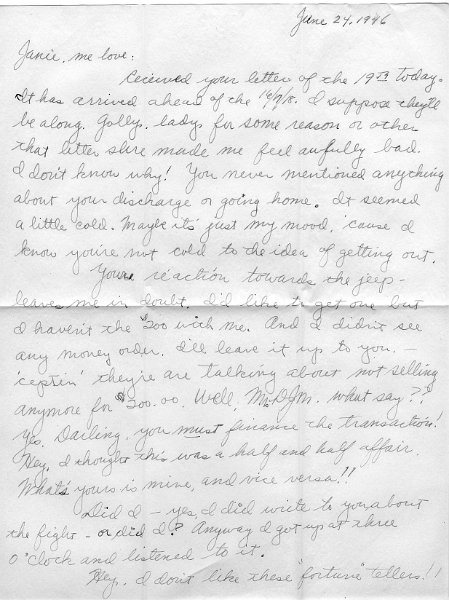 June 24, 1946
Janie, me love:
Received your letter of the 19th today.
It has arrived ahead of the 16/17/18. I suppose they'll
be along. Golly, lady, for some reason or other
that letter sure made me feel awfully bad.
I don't know why! You never mentioned anything
about your discharge or going home. It seemed
a little cold. Maybe it's just my mood, 'cause I
know you're not cold to the idea of getting out.
Your reaction towards the jeep -
leaves me in doubt. I'd like to get one but
I haven't the $200 with me. And I didn't see
any money order. I'll leave it up to you. -
'ceptin' they're are talking about not selling
anymore for $200.00. Well, Mrs. DJM. what say??
Yes, Darling, you must finance the transaction!
Hey, I thought this was a half and half affair.
What's yours is mine, and vice versa!!
Did I - yes I did write to you about
the fight - or did I? Anyway I got up at three
o'clock and listened to it.
Hey, I don't like these "fortune" tellers!!